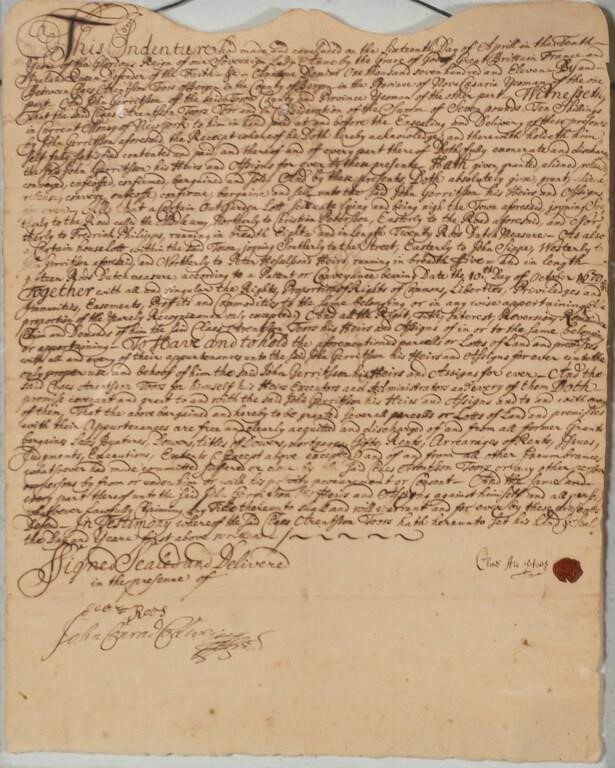 This Indenture had made and concluded on the Sixteenth Day of Aprill in the Tenth
Year of the Glorious Reign of our Sovereign Lady Anne by the Grace of God of Great Brittain France and
Ireland Queen Defender of the Faith &c Annoque Domini One thousand seven hundred and Eleven By and
Between Claes Arentson Toors of Bergen in the County of Bergen in the Province of Nova Cæsaria Yeoman of the one
part And John Gerritson of the said Town County and Province Yeoman of the other part Witnesseth
that the said Claes Arentson Toors for and in Consideration of the Summ of Seven pounds Ten Shillings
in Current Money of New york to him in hand paid at and before the Ensealing and Delivery of these presents
by John Gerritson aforesaid, the Receipt whereof he Doth hereby acknowledge and therewith holdeth him
self fully satisfied contented and paid and thereof and of every part thereof Doth fully exonerate and discharge
the said John Gerritson his Heirs and Assigns for ever by these presents, Hath given granted aliened released
conveyed, enfeoffed, confirmed, bargained and sold, And by these presents Doth absolutely give, grant, alien
release, convey, enfeoff, confirme, bargaine and sell unto the said John Gerritson, his Heirs and Assigns
a Certain Out Garden Lott Scituate lying and being nigh the Town aforesaid, joyning
to the Road called the Northerly to Christian Peterson, Easterly to the Road aforesaid, and Sou
therly to Fredrick Philipse running in breadth Eight, and in length Twenty Rods Dutch Measure As also
a Certain house Lott within the said Town, joyning Southerly to the Street, Easterly to John Sippe, Westerly to
Gerritson aforesaid, and Northerly to Peter Hesselsons Heirs, running in breadth five and in length
Rods Dutch measure according to a Patent or Conveyance bearing Date the 10th Day of October 1670
Together with all and singular the Rights, Proportion of Rights of Comons, Liberties, Priviledges and
Immunities, Easements, Profitts and Comodities to the same Belonging or in any wise appertaining
proportion of the Yearly Recognizance only excepted) And all the Right, Title, Interest, Reversion
Claim and Demands of him the said Claes Arentson Toors his Heirs and Assigns of in or to the same Belonging
or appertaining. To Have and to hold the aforementioned parcells or Lotts of Land and premisses
with all and every of their appurtenances unto the said John Gerritson his Heirs and Assigns for ever unto the
only proper use and behoof of him the said John Gerritson his Heirs and Assigns for ever And the
said Claes Arentson Toors for himself his Heirs Executors and Administrators and every of them Doth
promise covenant and grant to and with the said John Gerritson his Heirs and Assigns and to and with every
of them, That the above bargained and hereby to be granted severall parcells or Lotts of Land and premisses
with their Appurtenances are free and clearly acquitted and discharged of and from all former Grants
bargains Sales Joyntures, Dowers, titles of Dowers, mortgages, Gifts, Rents, Arrearages of Rents, Issues,
Judgments, Executions, Extents (Except above excepted) and of any from all other Encumbrances
whatsoever had made committed suffered or done by said Claes Arentson Toors or any other person
or persons by from or under him or with his privity procurement or Consent And the same and
every part thereof unto the said John Gerritson his Heirs and Assigns against himself and all persons
whatsoever lawfully Claiming any Title thereunto shall and will warrant and for ever by these presents
Defend In Testimony whereof the said Claes Arentson Toors hath hereunto set his Hand & Seal
the Day and Yeare first above written
Signed Sealed and Delivered
in the presence of
Claes Toors
Roos
John Conrad Codweis